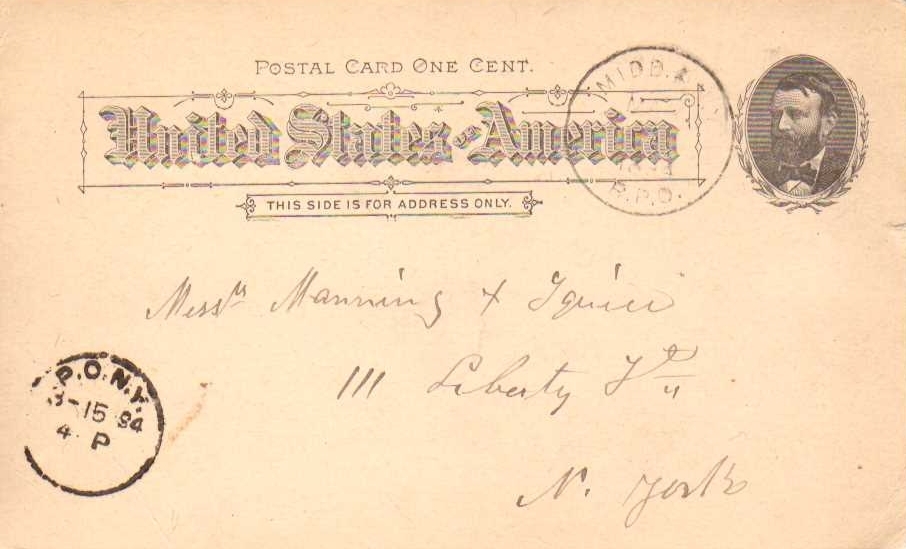 POSTAL CARD ONE CENT.
United States of America
THIS SIDE IS FOR ADDRESS ONLY.
MIDD. &
R.P.O.
Messrs Manning & Squier
111 Liberty St
N. York
P.O.N.Y.
3-15 94
4 P